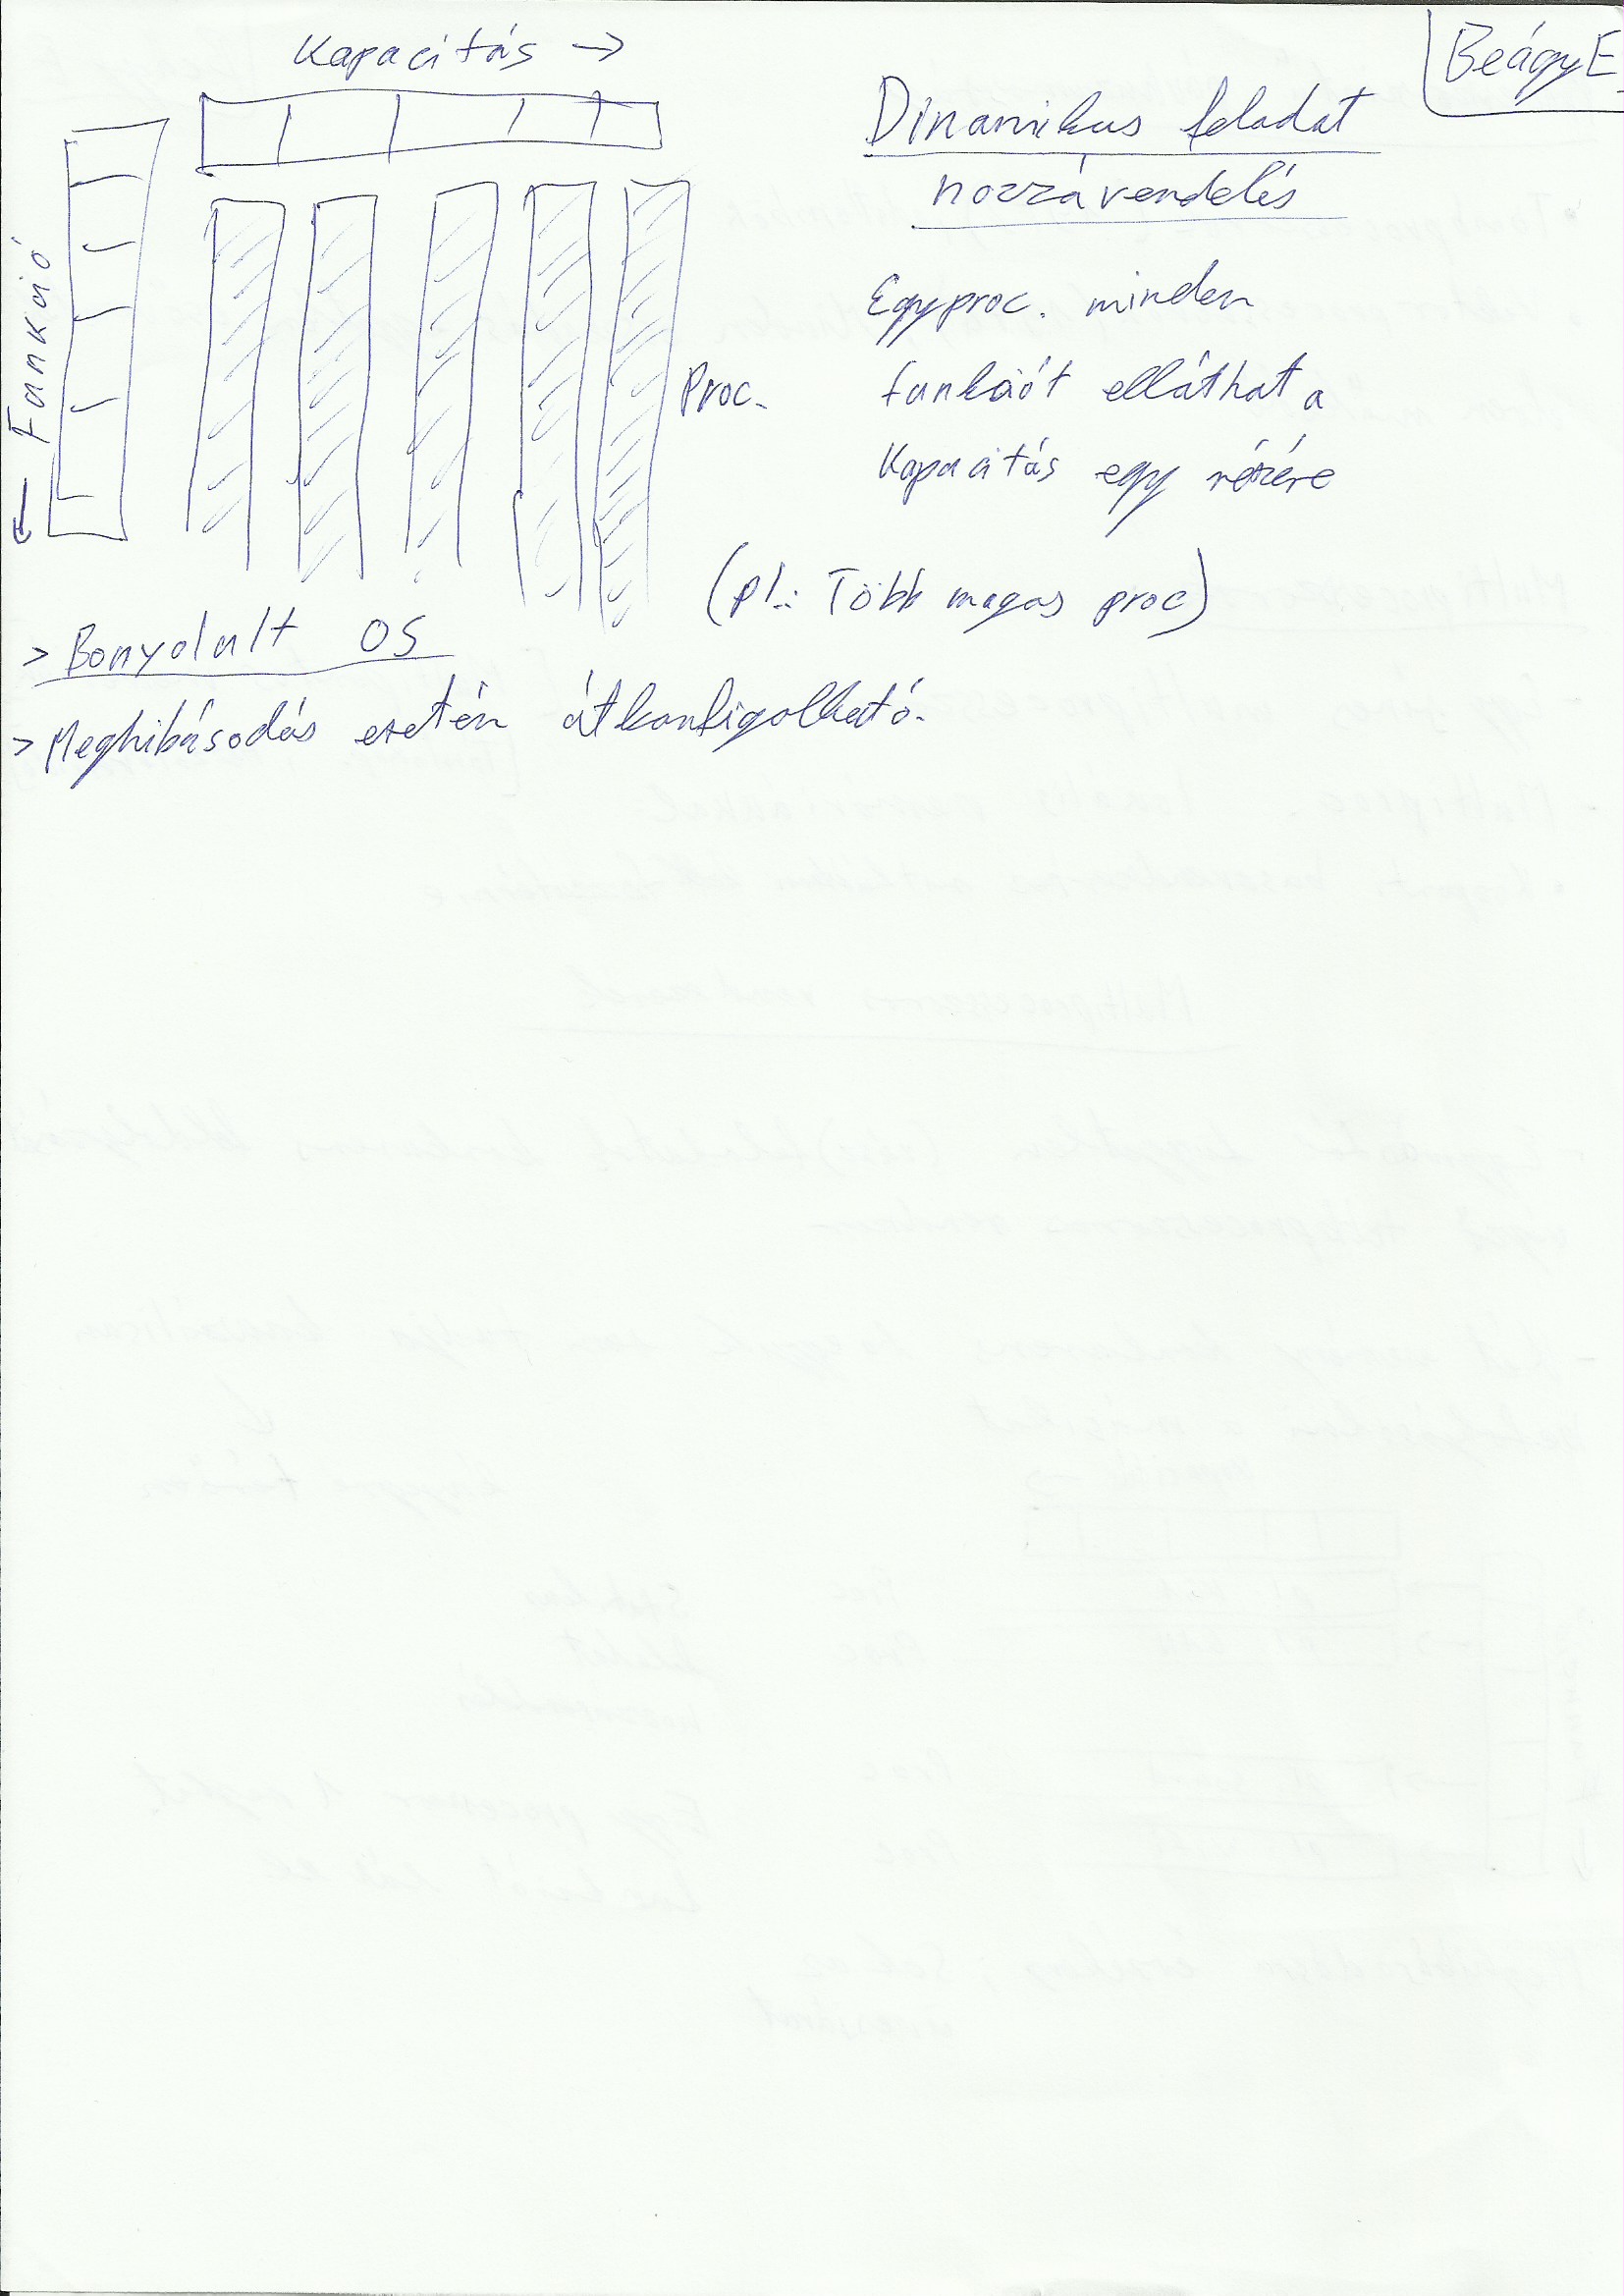 Kapacitás →
BeágyE
Dinamikus feladat
hozzárendelés
← Funkció
Egyproc. minden
Proc.
funkciót elláthat a
Kapacitás egy részére
(pl.: Több magos proc)
> Bonyolult OS
> Meghibásodás esetén átkonfigolható.